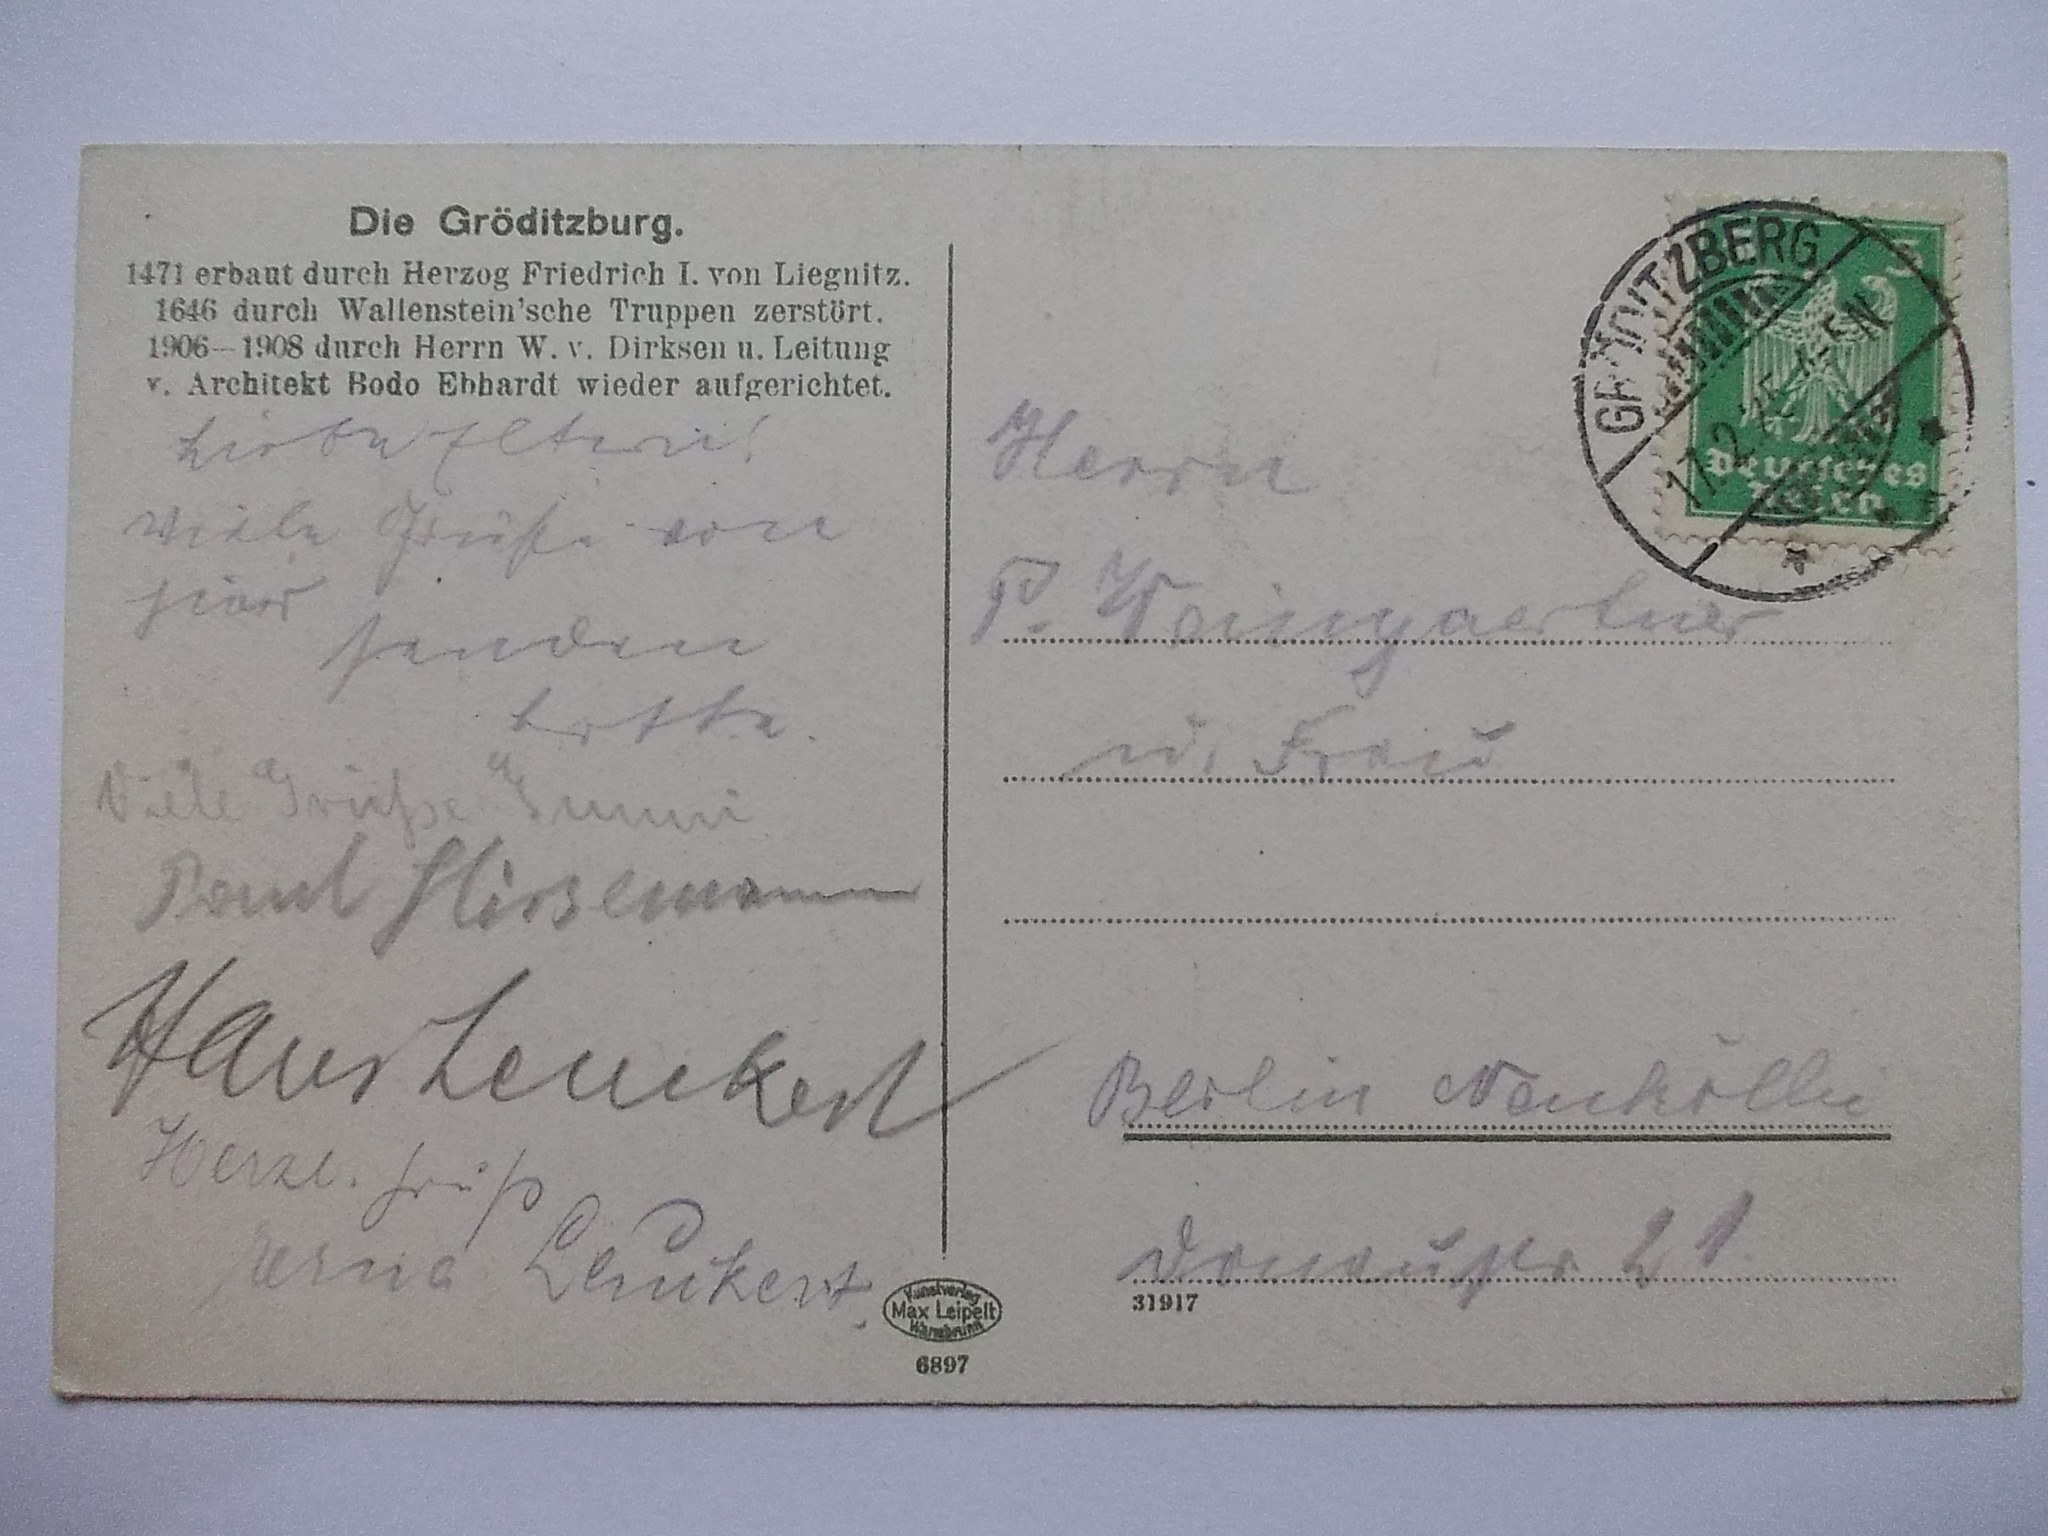 Die Gröditzburg.
1471 erbaut durch Herzog Friedrich I. von Liegnitz.
1646 durch Wallenstein'sche Truppen zerstört.
1906–1908 durch Herrn W. v. Dirksen u. Leitung
v. Architekt Bodo Ebhardt wieder aufgerichtet.
Liebe Eltern!
Viele Grüße von
hier
senden
Lotte.
Viele Grüße
Paul
Hans Lenckert
Herzl. Gruß
Erna Lenckert.
Kunstverlag
Max Leipelt
Warmbrunn
6897
GRÖDITZBERG
17.2.
5
Deutsches
Reich
Herrn
P. Weingaertner
u. Frau
Berlin Neukölln
Donaustr 21.
31917